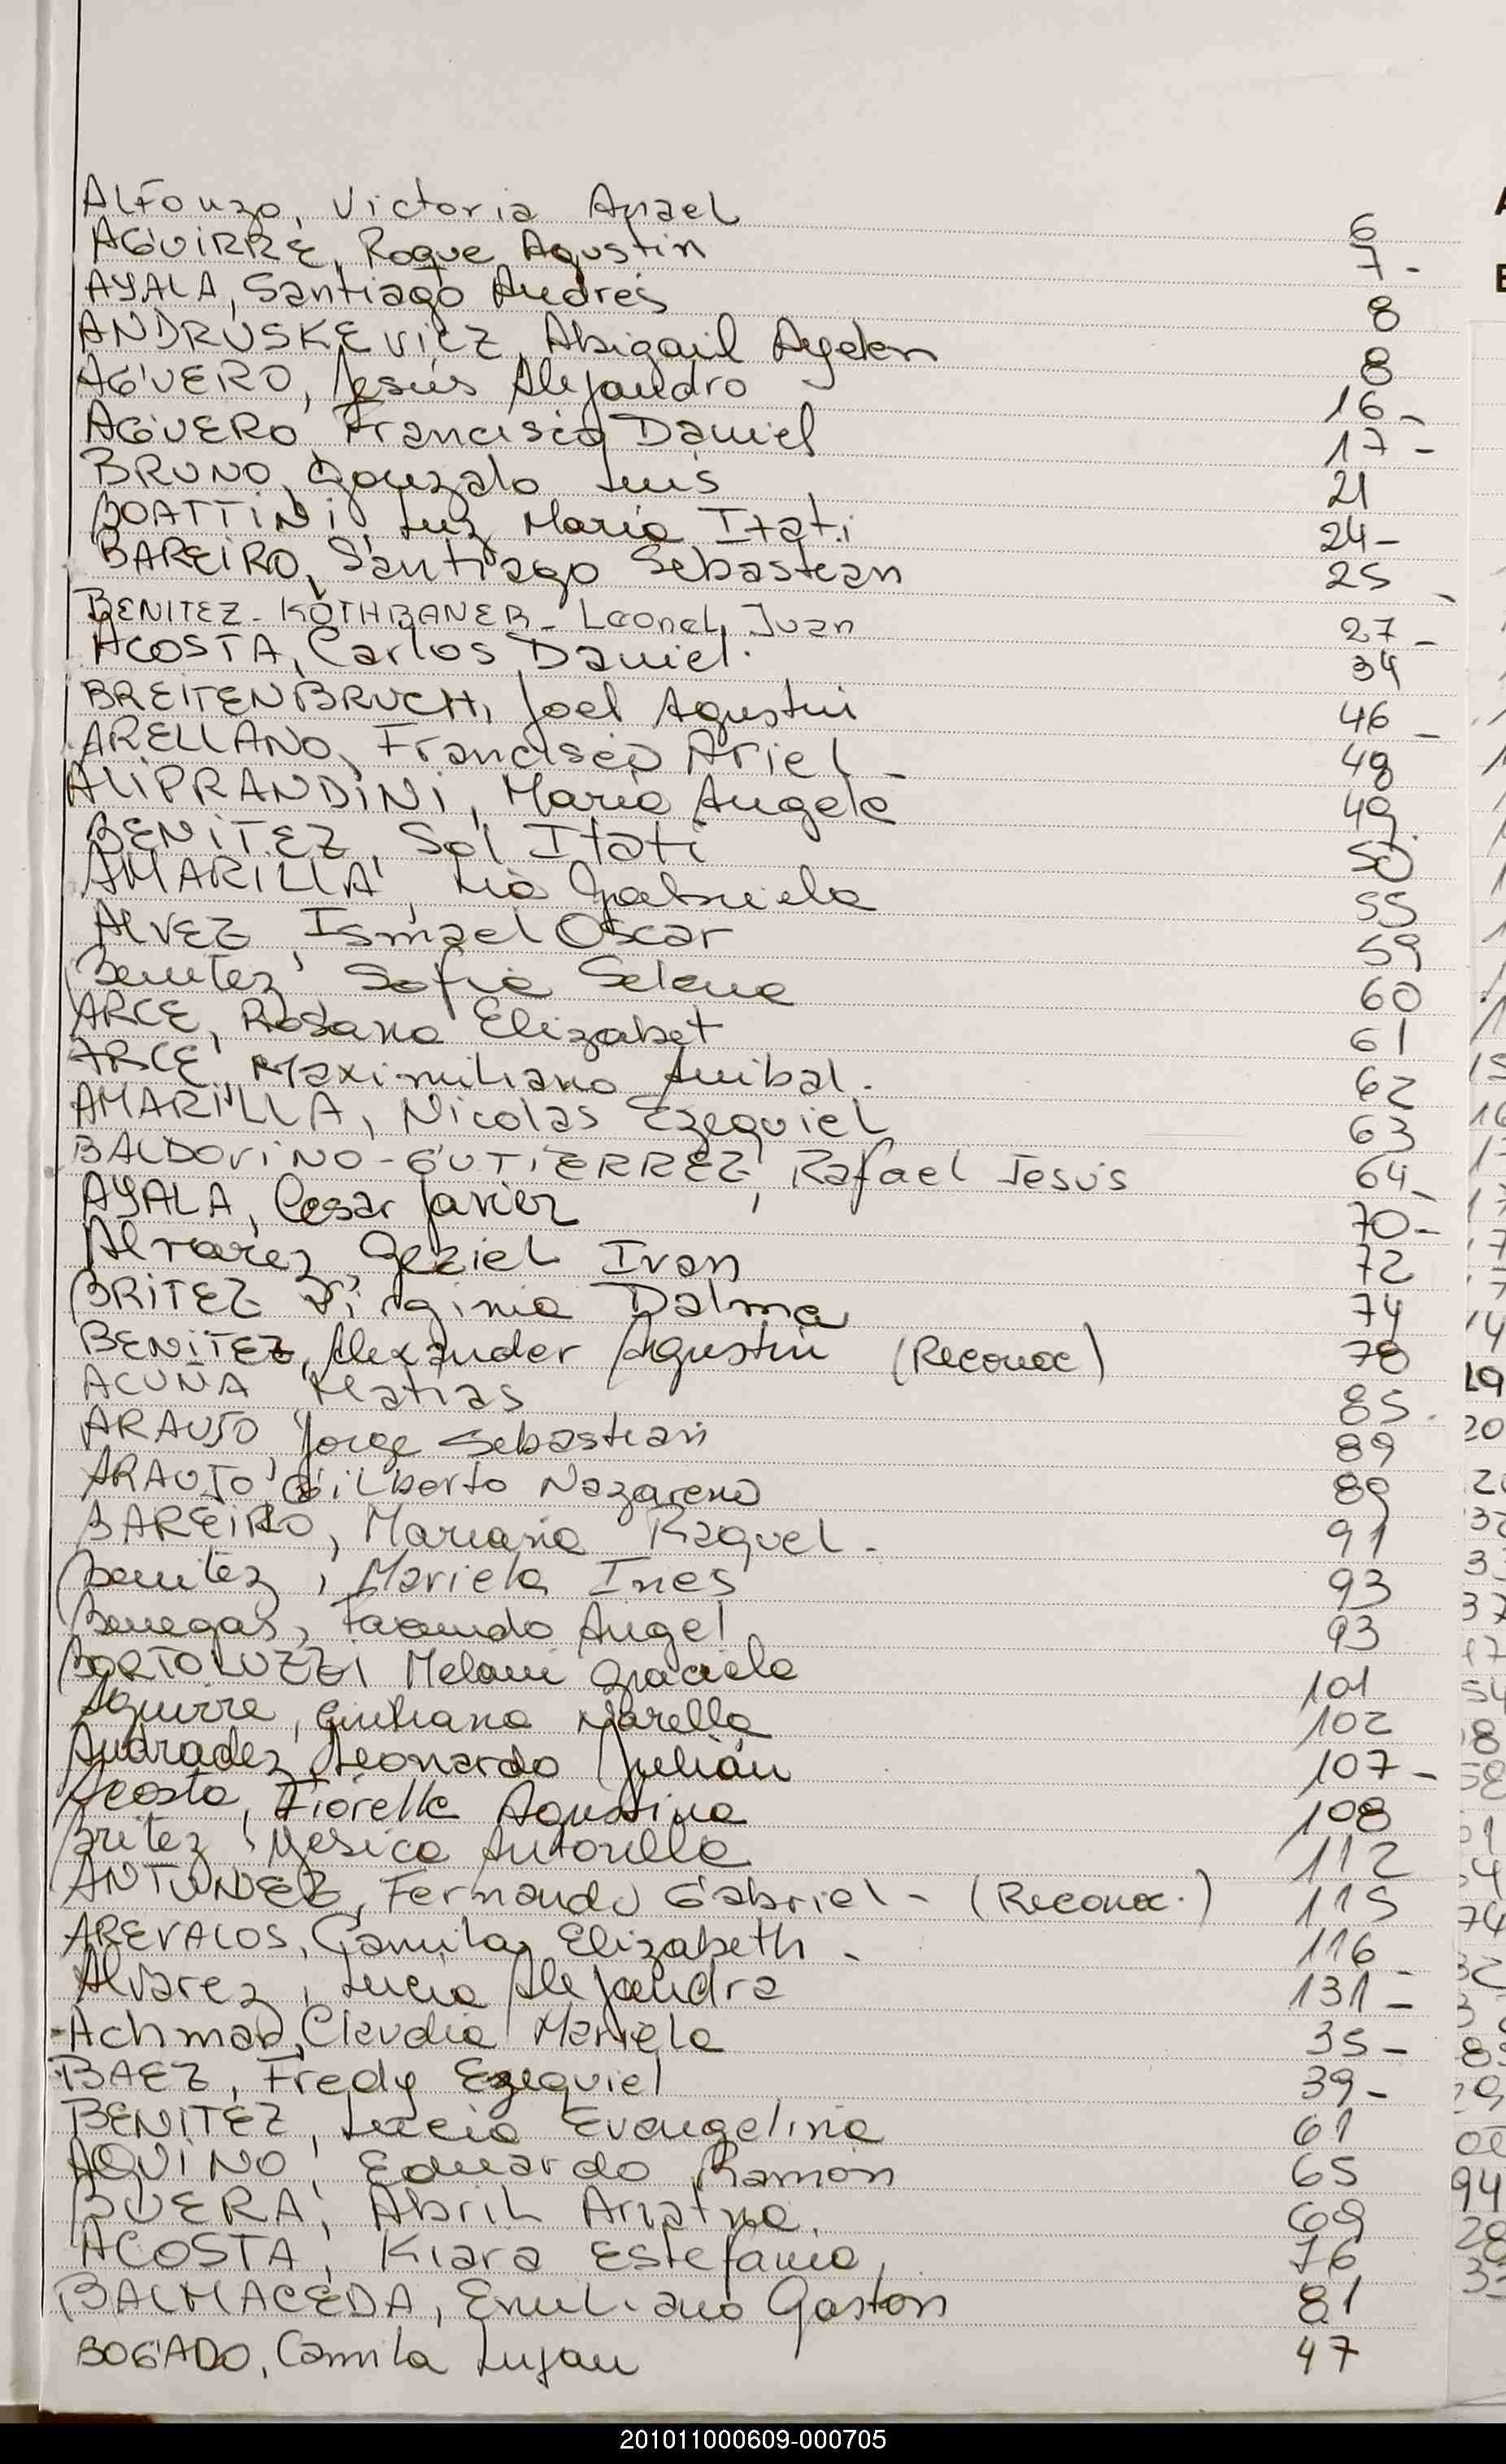 ALFonzo, Victoria Anael 6
AGUIRRE, Roque Agustin 7-
AYALA, Santiago Andres 8
ANDRUSKEVICZ, Abigail Ayelen 8
AGUERO, Jesús Alejandro 16-
AGUERO Francisco Daniel 17-
BRUNO, Gonzalo Luis 21
BOATTINI, Luz Maria Itati 24-
BAREIRO, Santiago Sebastian 25
BENITEZ-KOTHBANER-Leonel, Juan 27-
ACOSTA, Carlos Daniel. 34
BREITENBRUCH, Joel Agustin 46-
ARELLANO, Francisco Ariel- 48
ALIPRANDINI, Maria Angele 49.
BENITEZ, Sol Itati 50
AMARILLA, Lia Gabriela 55
AlVEZ, Ismael Oscar 59
Benitez, Sofia Selene 60
ARCE, Rosana Elizabet 61
ARCE, Maximiliano Anibal. 62
AMARILLA, Nicolas Ezequiel 63
BALDOVINO-GUTIERREZ, Rafael Jesús 64-
AYALA, Cesar Javier 70-
Alvarez, Geziel Ivan 72
BRITEZ Virginia Dalma 74
BENITEZ, Alexander Agustin (Reconoc) 78
ACUÑA Matias 85.
ARAUJO, Jorge Sebastian 89
ARAUJO, Gilberto Nazareno 89
BAREIRO, Mariana Raquel. 91
Benitez, Mariela Ines 93
Benegas, Facundo Angel 93
BORTOLUZZI, Melani Graciela 101
Aguirre, Giuliana Marella 102
Andradez, Leonardo Julián 107-
Acosta, Fiorella Agustina 108
Britez, Yesica Antonella 112
ANTUNEZ, Fernando Gabriel- (Reconoc.) 115
AREVALOS, Camila, Elizabeth- 116
Alvarez, Lucia Alejandra 131-
Achmad, Claudia Mariela 35-
BAEZ, Fredy Ezequiel 39-
BENITEZ, Lucia Evangelina 61
AQUINO, Eduardo Ramon 65
BUERA, Abril 69
ACOSTA, Kiara Estefania, 76
BALMACEDA, Emiliano Gaston 81
BOGADO, Camila Lujan 47
201011000609-000705